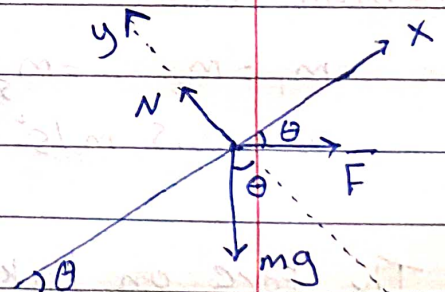 y
x
N
θ
F
θ
mg
θ